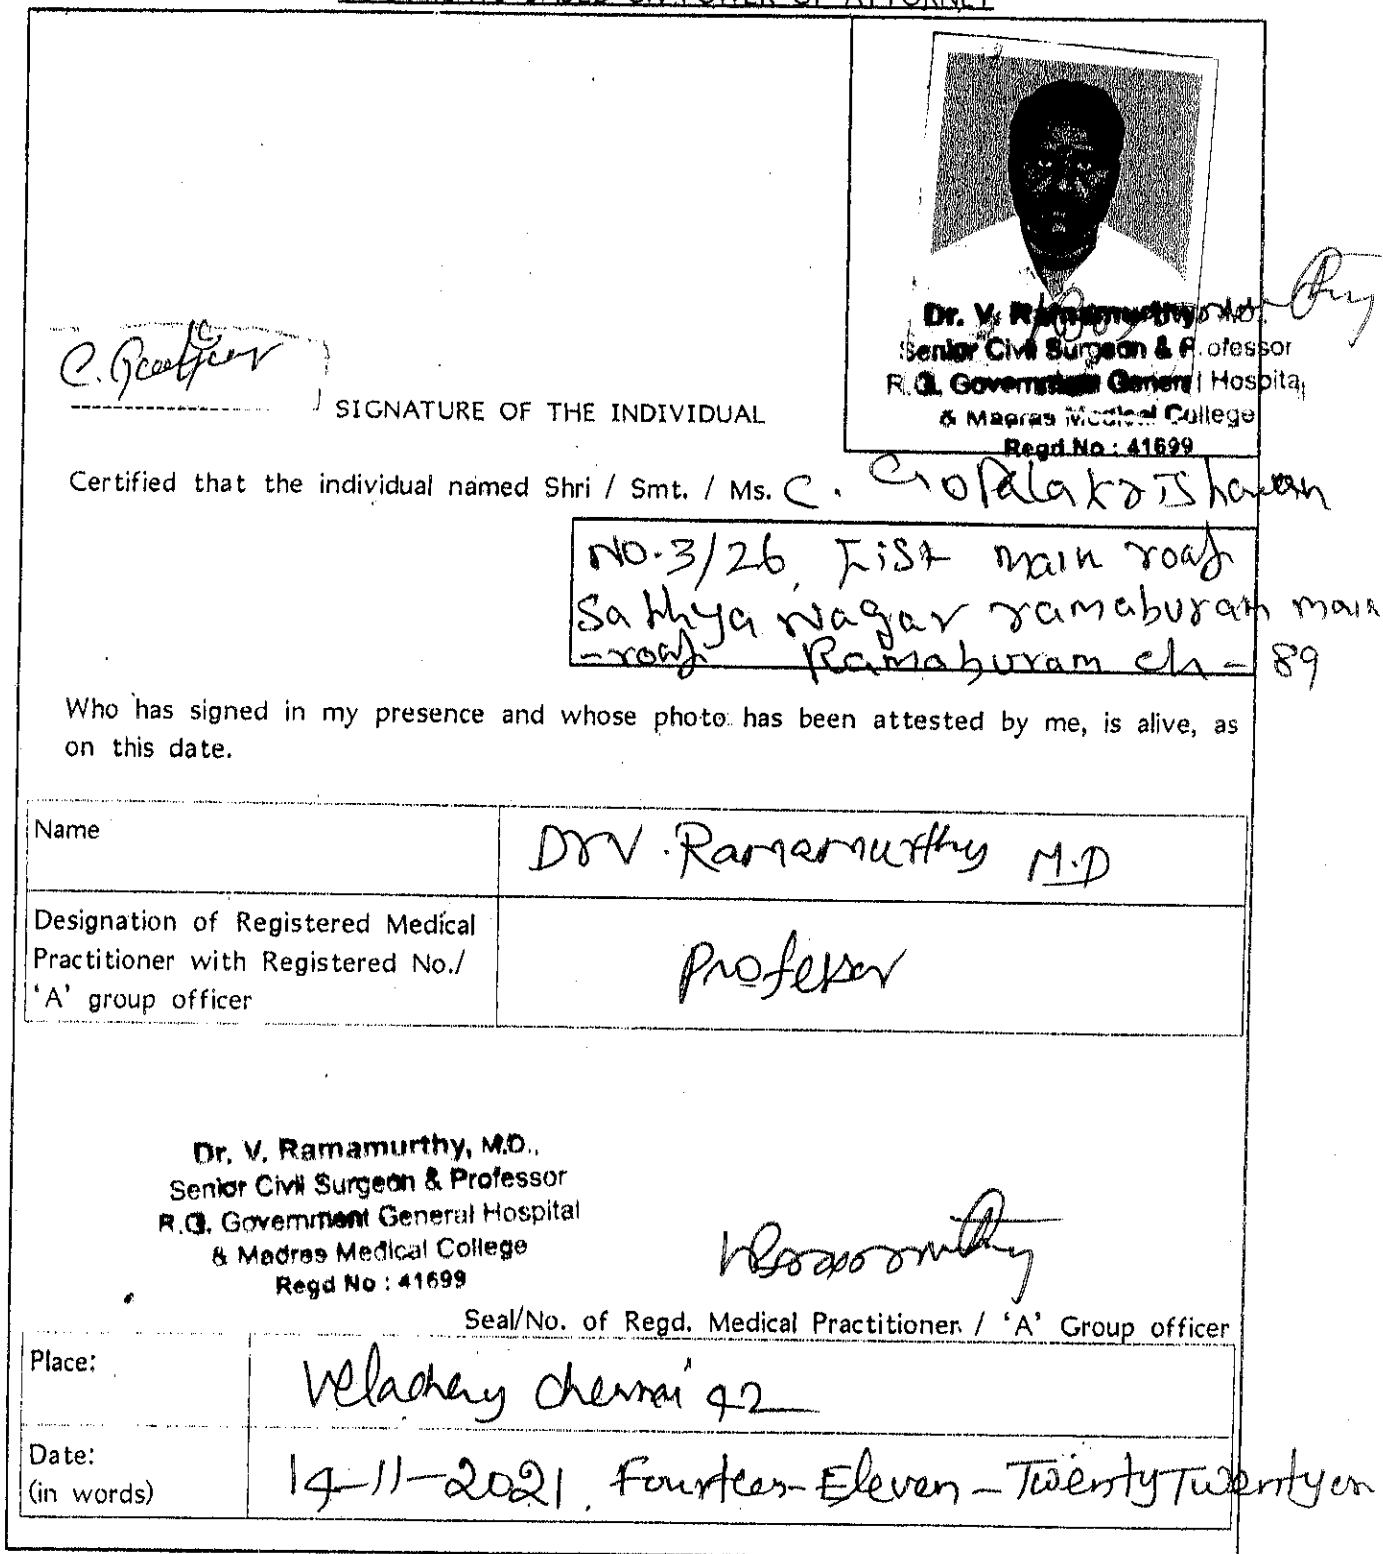 BASED ON POWER OF ATTORNEY
Dr. V. Ramamurthy, M.D.,
Senior Civil Surgeon & Professor
R.G. Government General Hospital
& Madras Medical College
Regd No : 41699
SIGNATURE OF THE INDIVIDUAL
Certified that the individual named Shri / Smt. / Ms. C. Gopalakrishanan
NO.3/26, First main road
Sathya Nagar ramaburam main
-road Ramaburam ch - 89
Who has signed in my presence and whose photo has been attested by me, is alive, as
on this date.
Name
Dr V. Ramamurthy M.D
Designation of Registered Medical
Practitioner with Registered No./
'A' group officer
Professor
Dr. V. Ramamurthy, M.D.,
Senior Civil Surgeon & Professor
R.G. Government General Hospital
& Madras Medical College
Regd No : 41699
Seal/No. of Regd. Medical Practitioner / 'A' Group officer
Place:
Velachery Chennai 42
Date:
(in words)
14-11-2021. Fourteen-Eleven-Twenty Twentyon